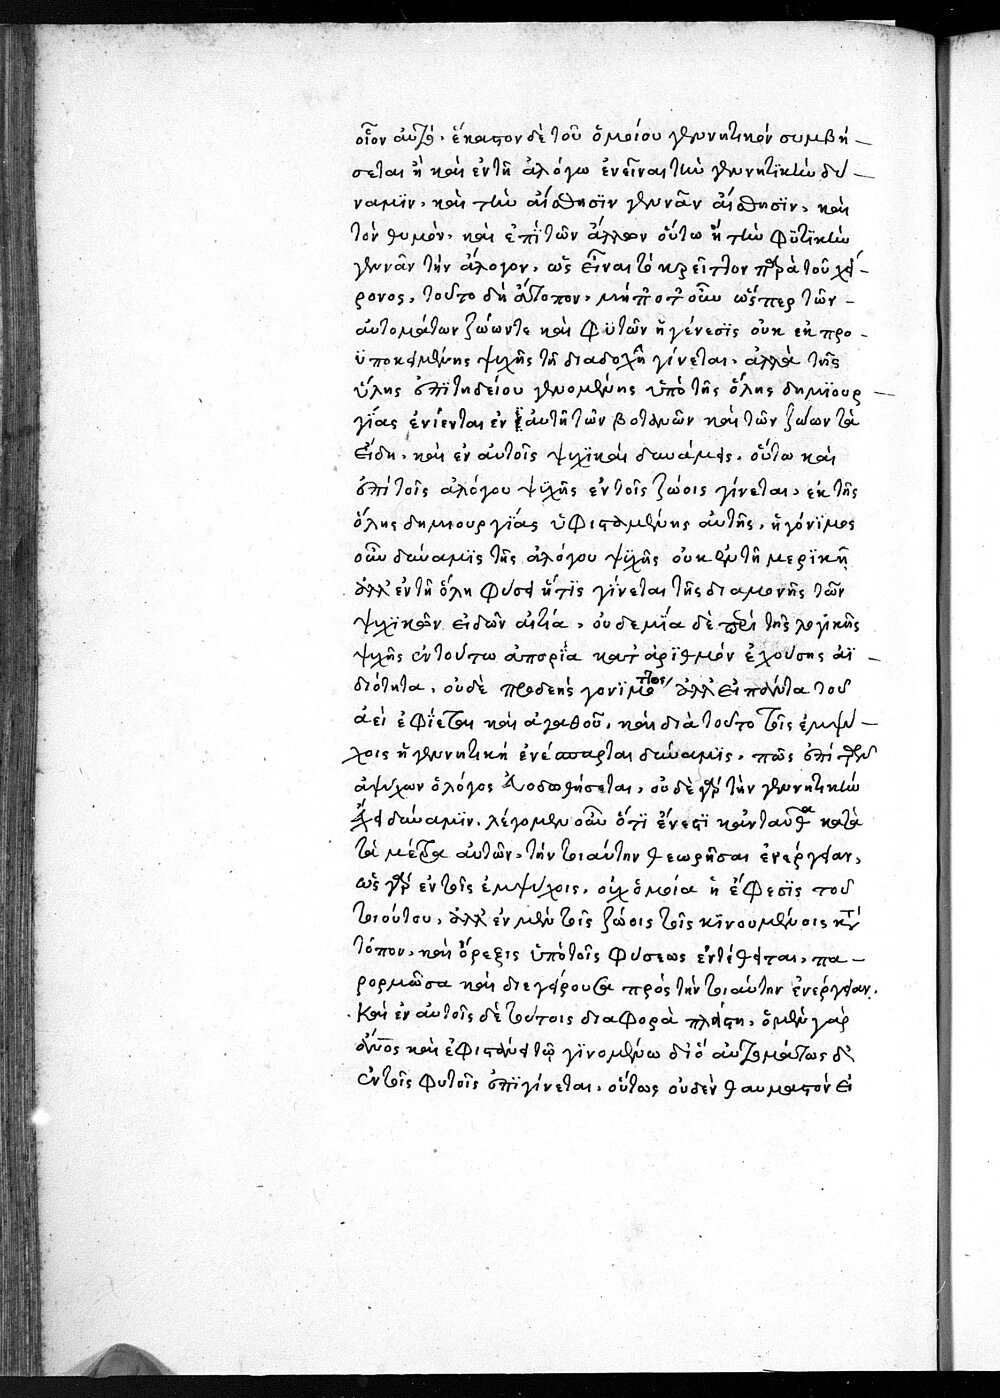 οἷον αὐτό. ἕκαστον δὲ τοῦ ὁμοίου γεννητικόν συμβή-
σεται ἢ καὶ ἐν τῇ ἀλόγω ἐνεῖναι τὴν γεννητικὴν δύ-
ναμιν, καὶ τὴν αἴσθησιν γεννᾶν αἴσθησιν, καὶ
τὸν θυμόν. καὶ ἐπὶ τῶν ἄλλων οὕτω ἢ τὴν φυτικὴν
γεννᾶν τὴν ἄλογον, ὡς εἶναι τὸ κρεῖττον παρὰ τοῦ χεί-
ρονος, τοῦτο δὴ ἄτοπον. μήποτ' οὖν ὥσπερ τῶν
αὐτομάτων ζώων τε καὶ φυτῶν ἡ γένεσις οὐκ ἐκ προ
ϋποκειμένης ψυχῆς τῇ διαδοχῇ γίνεται. ἀλλὰ τῆς
ὕλης ἐπιτηδείου γενομένης ὑπὸ τῆς ὅλης δημιουρ-
γίας ἐνίενται ἐν αὐτῇ τῶν βοτανῶν καὶ τῶν ζώων τὰ
εἴδη. καὶ ἐν αὐτοῖς ψυχικαὶ δυνάμεις. οὕτω καὶ
ἐπὶ τοῖς ἀλόγου ψυχῆς ἐν τοῖς ζώοις γίνεται, ἐκ τῆς
ὅλης δημιουργίας ὑφισταμένης αὐτῆς. ἡ γόνιμος
οὖν δύναμις τῆς ἀλόγου ψυχῆς οὐκ ἐν τῇ μερικῇ
ἀλλ' ἐν τῇ ὅλη φύσει ἥτις γίνεται τῆς διαμονῆς τῶν
ψυχικῶν εἰδῶν αἰτία. οὐδεμία δὲ περὶ τῆς λογικῆς
ψυχῆς ἐν τούτω ἀπορία κατ' ἀριθμόν ἐχούσης ἀϊ-
διότητα. οὐδὲ προδεὴς γονίμο ἀλλ' εἰ πάντα τοῦ
ἀεὶ ἐφίεται καὶ ἀγαθοῦ, καὶ διὰ τοῦτο τοῖς ἐμψύ-
χοις ἡ γεννητικὴ ἐνέσπαρται δύναμις, πῶς ἐπὶ τῶν
ἀψύχων ὁ λόγος ἀποδοθήσεται. οὐδὲ γὰρ τὴν γεννητικὴν
ἔχει δύναμιν. λέγομεν οὖν ὅτι ἔνεστι κἀνταῦθα κατὰ
τὰ μέτρα αὐτῶν, τὴν τοιαύτην θεωρῆσαι ἐνέργειαν.
ὡς γὰρ ἐν τοῖς ἐμψύχοις, οὐχ ὁμοία ἡ ἔφεσις τοῦ
τοιούτου, ἀλλ' ἐν μὲν τοῖς ζώοις τοῖς κινουμένοις κατὰ
τόπον, καὶ ὄρεξις ὑπὸ τοῖς φύσεως ἐντέθειται, πα-
ρορμῶσα καὶ διεγείρουσα πρὸς τὴν τοιαύτην ἐνέργειαν.
Καὶ ἐν αὐτοῖς δὲ τούτοις διαφορὰ πλείστη. ὁ μὲν γὰρ
ἄνθρωπος καὶ ἐφιστάνει τῷ γινομένω διὸ αὐτομάτως δὲ
ἐν τοῖς φυτοῖς ἐπιγίνεται. οὕτως οὐδὲν θαυμαστὸν εἰ